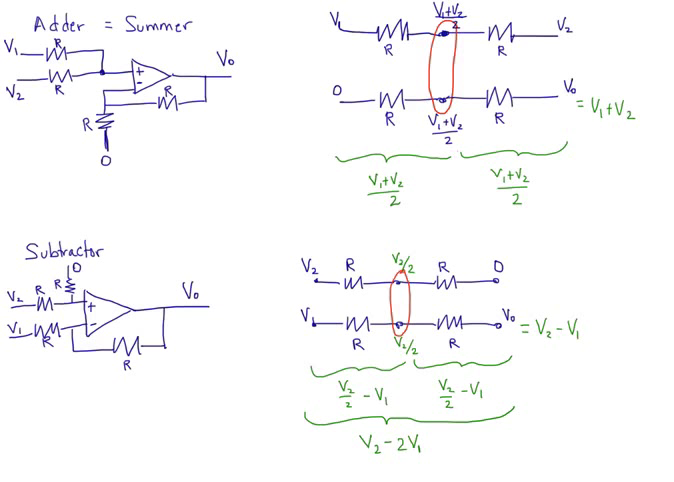 Adder = Summer
V₁
R
V₂
R
+
-
V₀
R
R
0
V₁
R
(V₁+V₂)/2
R
V₂
0
R
(V₁+V₂)/2
R
V₀ = V₁+V₂
(V₁+V₂)/2
(V₁+V₂)/2
Subtractor
0
R
V₂ R
+
V₁
R
-
V₀
R
V₂
R
V₂/2
R
0
V
R
V₂/2
R
V₀ = V₂-V₁
V₂/2 - V₁
V₂/2 - V₁
V₂-2V₁